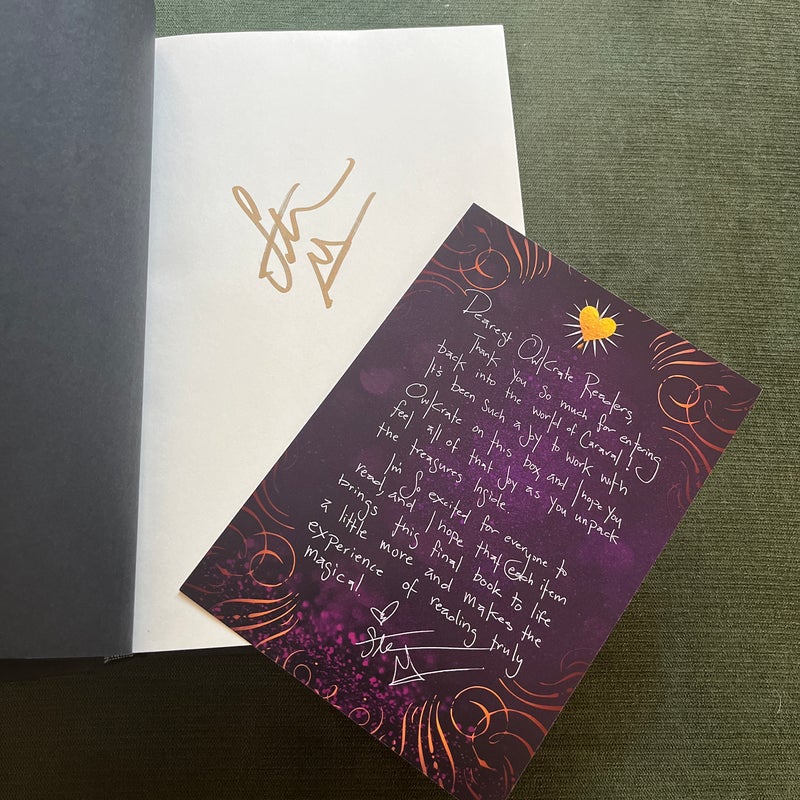 Dearest OwlCrate Readers,
Thank you so much for entering
back into the world of Caraval!
It's been such a joy to work with
OwlCrate on this box and I hope you
feel all of that joy as you unpack
the treasures inside.
I'm so excited for everyone to
read and I hope that each item
brings this final book to life
a little more and makes the
experience of reading truly
magical.